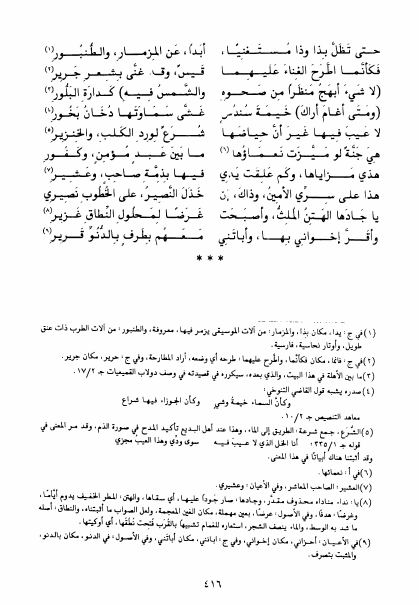 حتى تظلّ بذا وذا مستغنيا، أبداً، عن المزمار، والطنبور(١)
فكأنما اطّرح الغناء عليهما قيس، وقد غنّى بشعر جرير(٢)
(لا شيء أبهج منظراً من صحوه والشمس فيه) كدارة البلّور(٣)
(ومتى أغام أراك) خيمة سندس غشّى سماوتها دخان بخور(٤)
لا عيب فيها غير أنّ حياضها شرع لورد الكلب، والخنزير(٥)
هي جنّة لو ميّزت نعماؤها(٦) ما بين عبد مؤمن، وكفور
هذي مزاياها، وكم علقت يدي فيها بذمّة صاحب، وعشير(٧)
هذا على سرّي الأمين، وذاك، إن خذل النصير، على الخطوب نصيري
يا جادها الهتن الملثّ، وأصبحت غرضا لمحلول النطاق غزير(٨)
وأقرّ إخواني بها، وأباتني معهم بطرف بالدنوّ قرير(٩)
* * *
(١) في ج: يدا، مكان بذا، والمزمار: من آلات الموسيقى يزمر فيها، معروفة، والطنبور: من آلات الطرب ذات عنق
طويل، وأوتار نحاسية، فارسية.
(٢) في ج: فانما، مكان فكأنما، واطرح عليهما: طرحه أي وضعه، أراد المطارحة، وفي ج: حرير، مكان جرير.
(٣) ما بين الأهلة في هذا البيت، والذي بعده، سيكرره في قصيدته في وصف دولاب القميعيات جـ ١٧/٢.
(٤) صدره يشبه قول القاضي التنوخي:
وكأنّ السماء خيمة وشي وكأن الجوزاء فيها شراع
معاهد التنصيص جـ ١٠/٢.
(٥) الشرع، جمع شرعة: الطريق إلى الماء، وهذا عند أهل البديع تأكيد المدح في صورة الذم، وقد مر المعنى في
قوله جـ ٣٣٥/١: أنا الخل الذي لا عيب فيه سوى ودّي وهذا العيب مجزي
وقد أثبتنا هناك أبياتًا في هذا المعنى.
(٦) في أ: نعمائها.
(٧) العشير: الصاحب المعاشر، وفي الأعيان: وعشيري.
(٨) يا: ندا، مناداه محذوف مقدّر، وجادها: صار جوداً عليها، أي سقاها، والهتن: المطر الخفيف يدوم أيامًا،
وغرضا: هدفا، وفي الأصول: عرضا، بعين مهملة، مكان الغين المعجمة، ولعل الصواب ما أثبتناه، والنطاق: أصله
ما شد به الوسط، والماء ينصف الشجر، استعاره للغمام تشبيها بالقرب فتحت نطقها، أي أوكيتها.
(٩) في الأعيان: أحزاني، مكان إخواني، وفي ج: اباتني، مكان أباتني، وفي الأصول: في الدنو، مكان بالدنو،
والمثبت بتصرف.
٤١٦